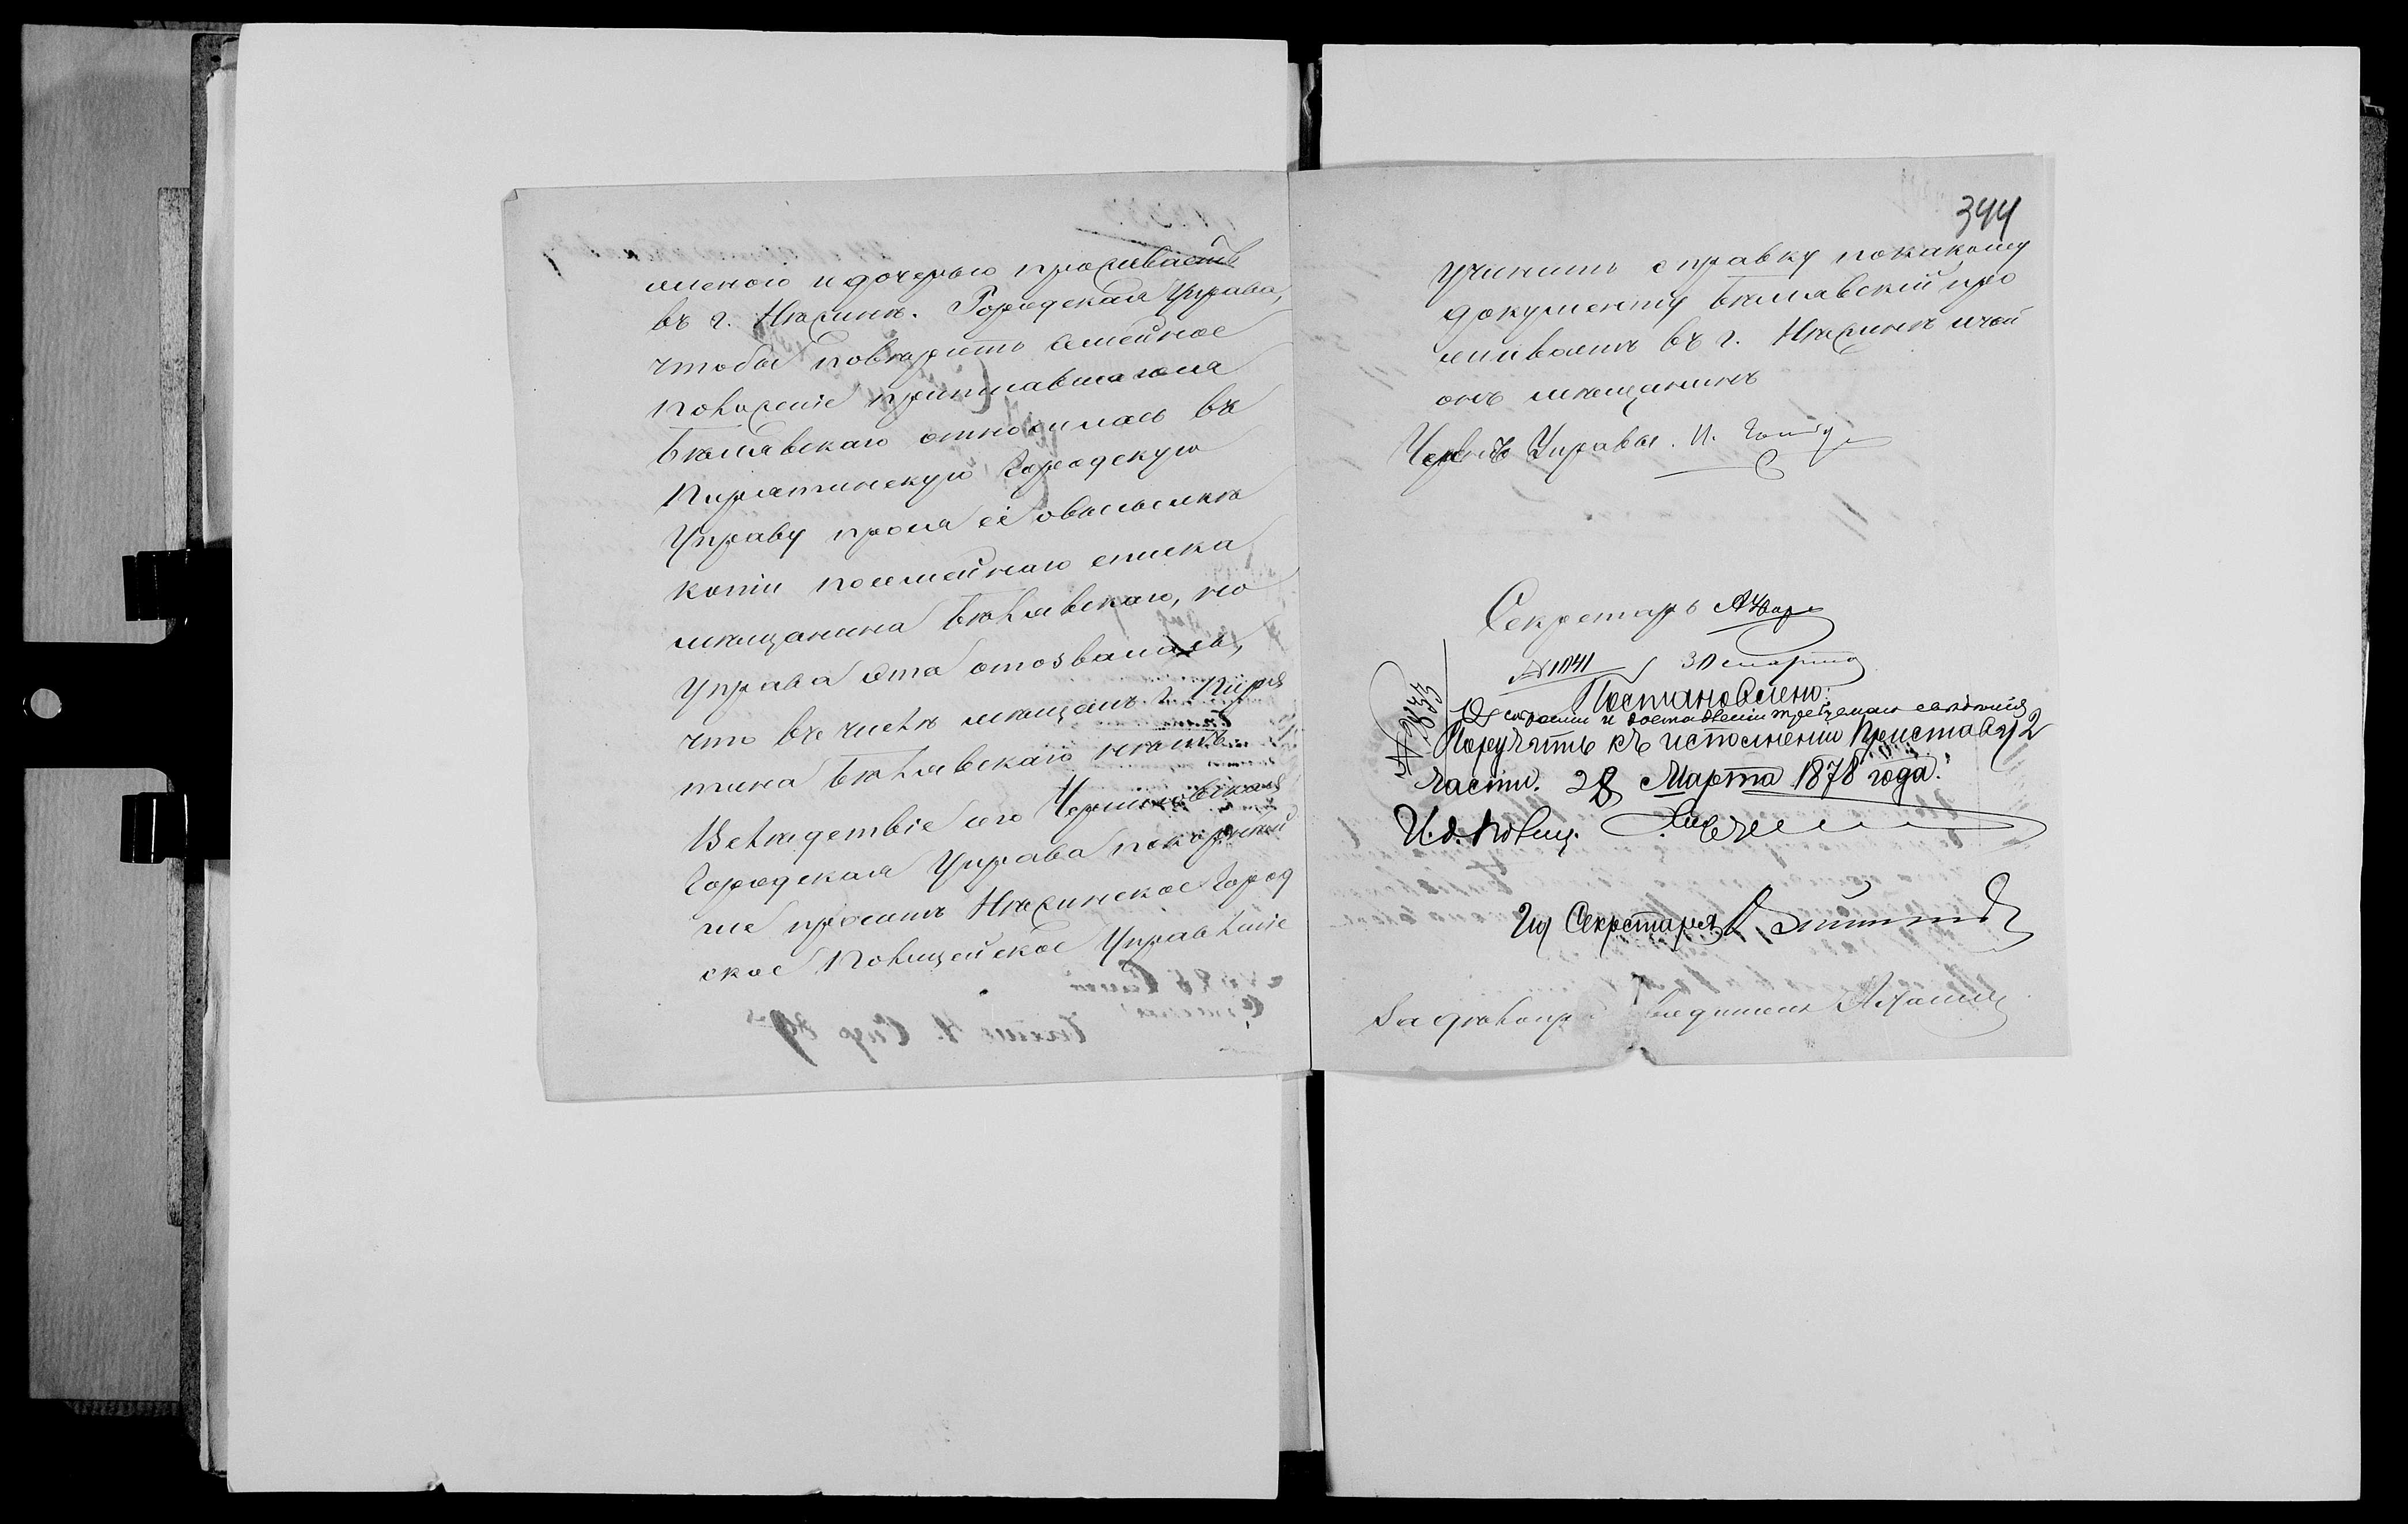 женою и дочерью проживаетъ
въ г. Нѣжинѣ. Городская Управа,
чтобы повѣрить семейное
положеніе приписавшагося
Бѣлявскаго относилась въ
Пирятинскую Городскую
Управу прося её о высылкѣ
копіи посемейнаго списка
мѣщанина Бѣлявскаго, но
управа эта отозвалась,
что въ числѣ мѣщанъ г. Пиря
тина Бѣлявскаго нѣтъ.
Вслѣдствіе сего Черниговская
Городская Управа покорнѣй
ше проситъ Нѣжинское Город
ское Полицейское Управленіе
344
учинить справку по какому
документу Бѣлявскій про
живаетъ въ г. Нѣжинѣ и чей
онъ мѣщанинъ
Членъ Управы. И.
Секретарь
№ 1041 30 марта
№ 2433
Постановлено:
О собраніи и доставленіи требуемыхъ свѣдѣній
Поручить къ исполненію Приставу 2
части. 28 Марта 1878 года.
И. д. Полиц.
За Секретаря
За дѣлопр